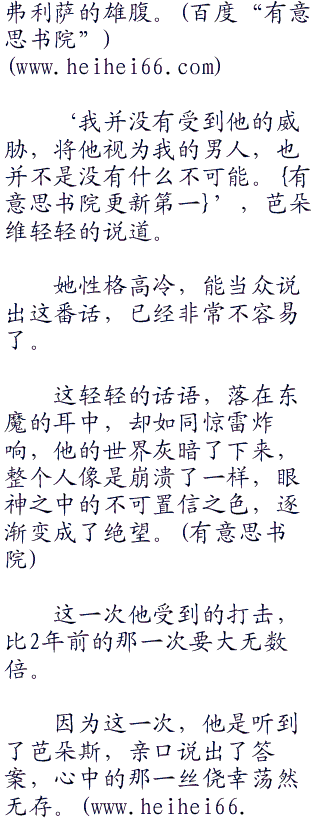 弗利萨的雄腹。(百度“有意
思书院”)
(www.heihei66.com)
‘我并没有受到他的威
胁，将他视为我的男人，也
并不是没有什么不可能。{有
意思书院更新第一}’，芭朵
维轻轻的说道。
她性格高冷，能当众说
出这番话，已经非常不容易
了。
这轻轻的话语，落在东
魔的耳中，却如同惊雷炸
响，他的世界灰暗了下来，
整个人像是崩溃了一样，眼
神之中的不可置信之色，逐
渐变成了绝望。(有意思书
院)
这一次他受到的打击，
比2年前的那一次要大无数
倍。
因为这一次，他是听到
了芭朵斯，亲口说出了答
案，心中的那一丝侥幸荡然
无存。(www.heihei66.